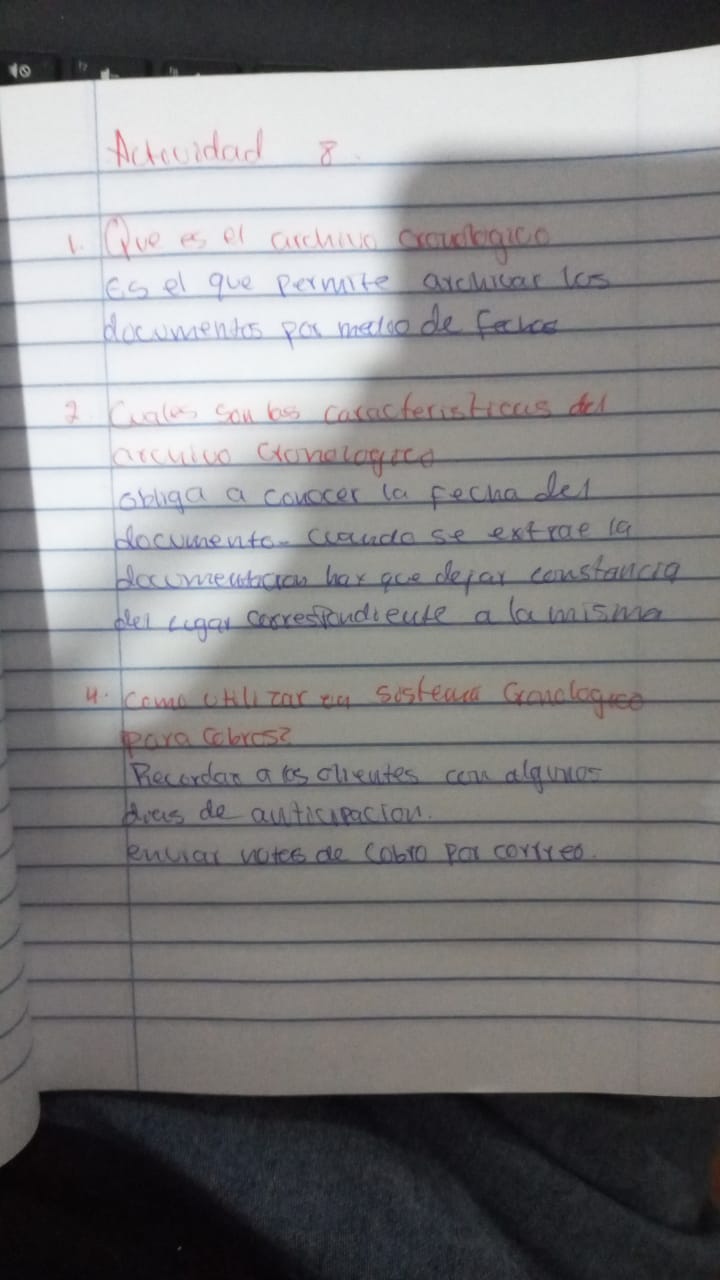 Actividad 8.
1. Que es el archivo cronologico
Es el que permite archivar los
documentos por medio de fechas
2. Cuales son las caracteristicas del
archivo Cronologico
obliga a conocer la fecha del
documento. Cuando se extrae la
documentacion hay que dejar constancia
del lugar correspondiente a la misma
4. Como utilizar un sistema Cronologico
para Cobros?
Recordar a los clientes con algunos
dias de anticipacion.
enviar notas de Cobro por correo.